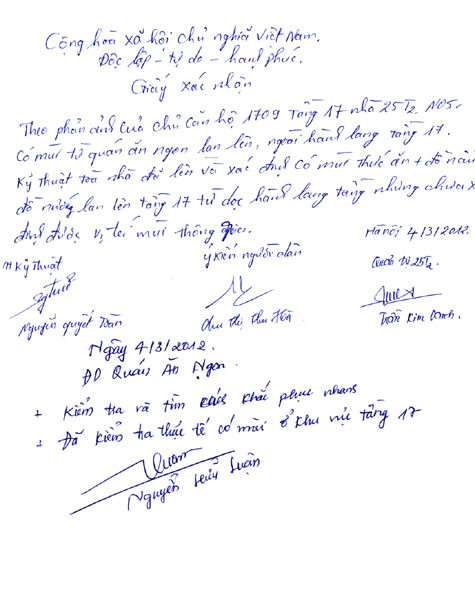 Cộng hoà xã hội chủ nghĩa Việt Nam.
Độc lập - tự do - hạnh phúc.
Giấy xác nhận
Theo phản ánh của chủ căn hộ 1709 Tầng 17 nhà 25T2 N05.
Có mùi từ quán ăn ngon lan lên, ngoài hành lang tầng 17.
Kỹ thuật toà nhà đã lên và xác định có mùi thức ăn + đồ
đồ nướng lan lên tầng 17 từ dọc hành lang tầng nhưng chưa
định được vị trí mùi thông qua.
Hà nội 4/3/2012.
TT Kỹ thuật
ý kiến người dân
25T2
Nguyễn quyết Toàn
Chu thị thu Hòa
Trần Kim
Ngày 4/3/2012.
ĐD Quán Ăn Ngon.
+ Kiểm tra và tìm cách khắc phục nhanh
+ Đã kiểm tra thực tế có mùi ở khu vực tầng 17
Nguyễn Hữu Luận